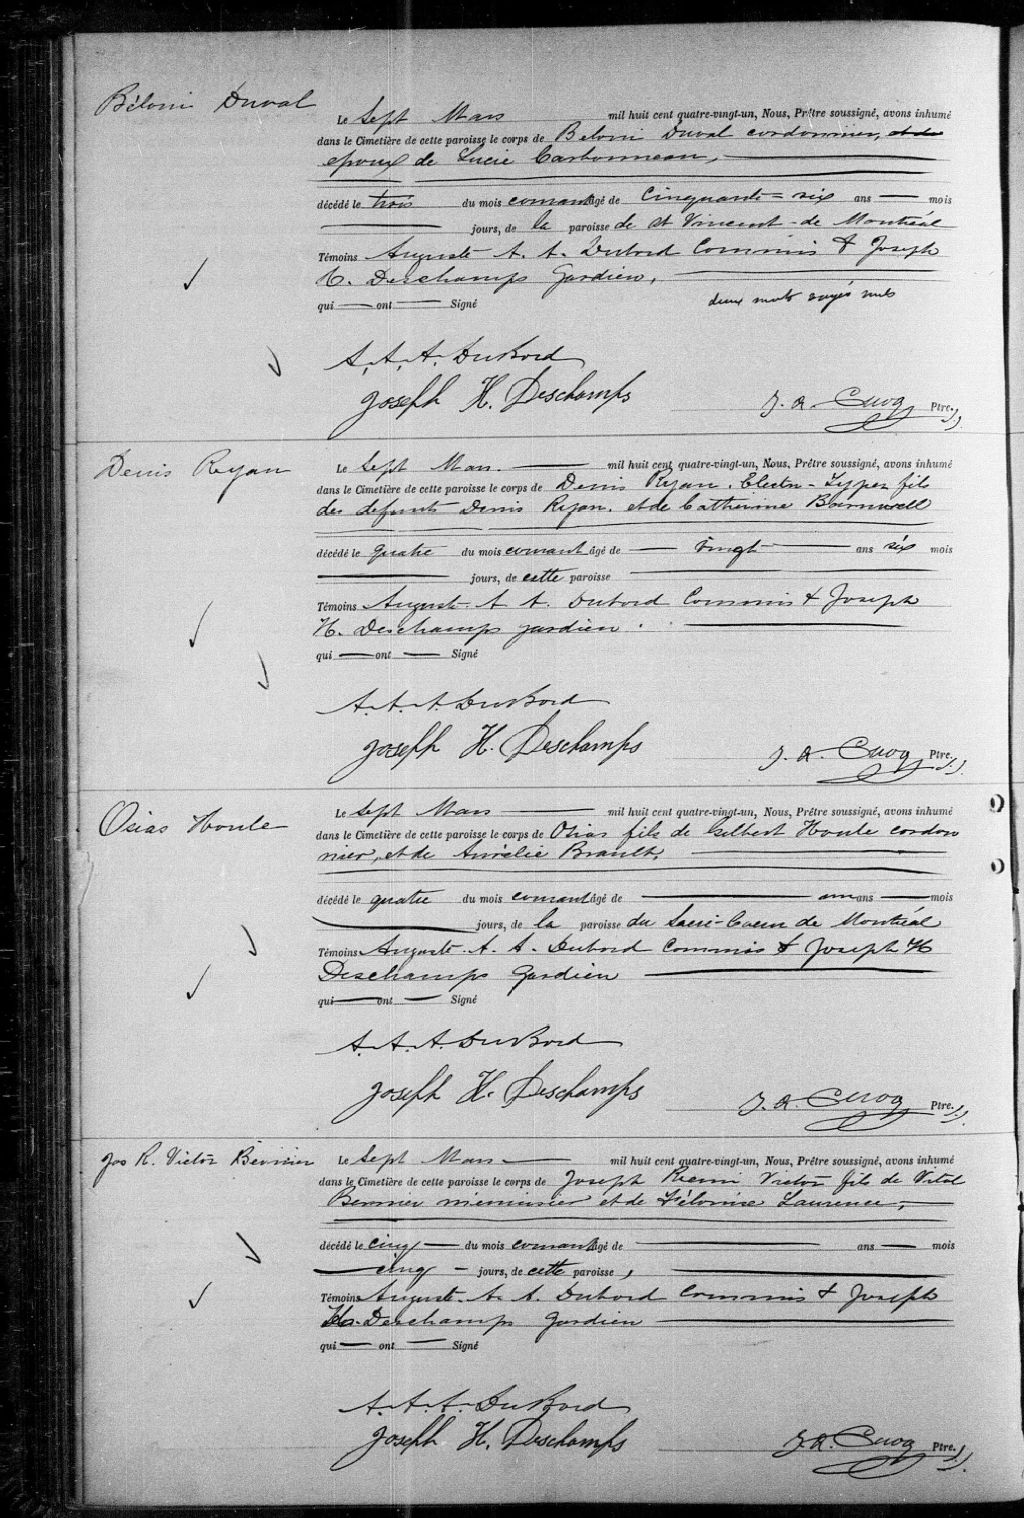 Béloni Duval
Le Sept Mars mil huit cent quatre-vingt-un, Nous, Prêtre soussigné, avons inhumé
dans le Cimetière de cette paroisse le corps de Beloni Duval cordonnier, et de
epoux de Lucie Carbonneau,
décédé le trois du mois courant âgé de Cinquante-six ans mois
jours, de la paroisse de St Vincent de Montréal
Témoins Auguste A. A. Dubord Commis & Joseph
H. Deschamps Gardien,
qui ont Signé deux mots rayés nuls
A. A. A. DuBord
Joseph H. Deschamps
J. A. Cuoq Ptre.
Denis Ryan
Le Sept Mars. mil huit cent quatre-vingt-un, Nous, Prêtre soussigné, avons inhumé
dans le Cimetière de cette paroisse le corps de Denis Ryan, Electro-Typer fils
des defunts Denis Ryan, et de Catherine Barnwell
décédé le quatre du mois courant âgé de vingt ans six mois
jours, de cette paroisse
Témoins Auguste A. A. Dubord Commis & Joseph
H. Deschamps gardien.
qui ont Signé
A. A. A. DuBord
Joseph H. Deschamps
J. A. Cuoq Ptre.
Osias Houle
Le Sept Mars mil huit cent quatre-vingt-un, Nous, Prêtre soussigné, avons inhumé
dans le Cimetière de cette paroisse le corps de Osias fils de Gilbert Houle cordon
nier, et de Aurélie Brault,
décédé le quatre du mois courant âgé de un ans mois
jours, de la paroisse du Sacré-Coeur de Montréal
Témoins Auguste A. A. Dubord Commis & Joseph H
Deschamps Gardien
qui ont Signé
A. A. A. DuBord
Joseph H. Deschamps
J. A. Cuoq Ptre.
Jos R. Victor Bernier
Le Sept Mars mil huit cent quatre-vingt-un, Nous, Prêtre soussigné, avons inhumé
dans le Cimetière de cette paroisse le corps de Joseph Remi Victor fils de Vital
Bernier menuisier et de Hélonise Laurence,
décédé le cinq du mois courant âgé de ans mois
cinq jours, de cette paroisse,
Témoins Auguste A. A. Dubord Commis & Joseph
H. Deschamps Gardien
qui ont Signé
A. A. A. DuBord
Joseph H. Deschamps
J. A. Cuoq Ptre.